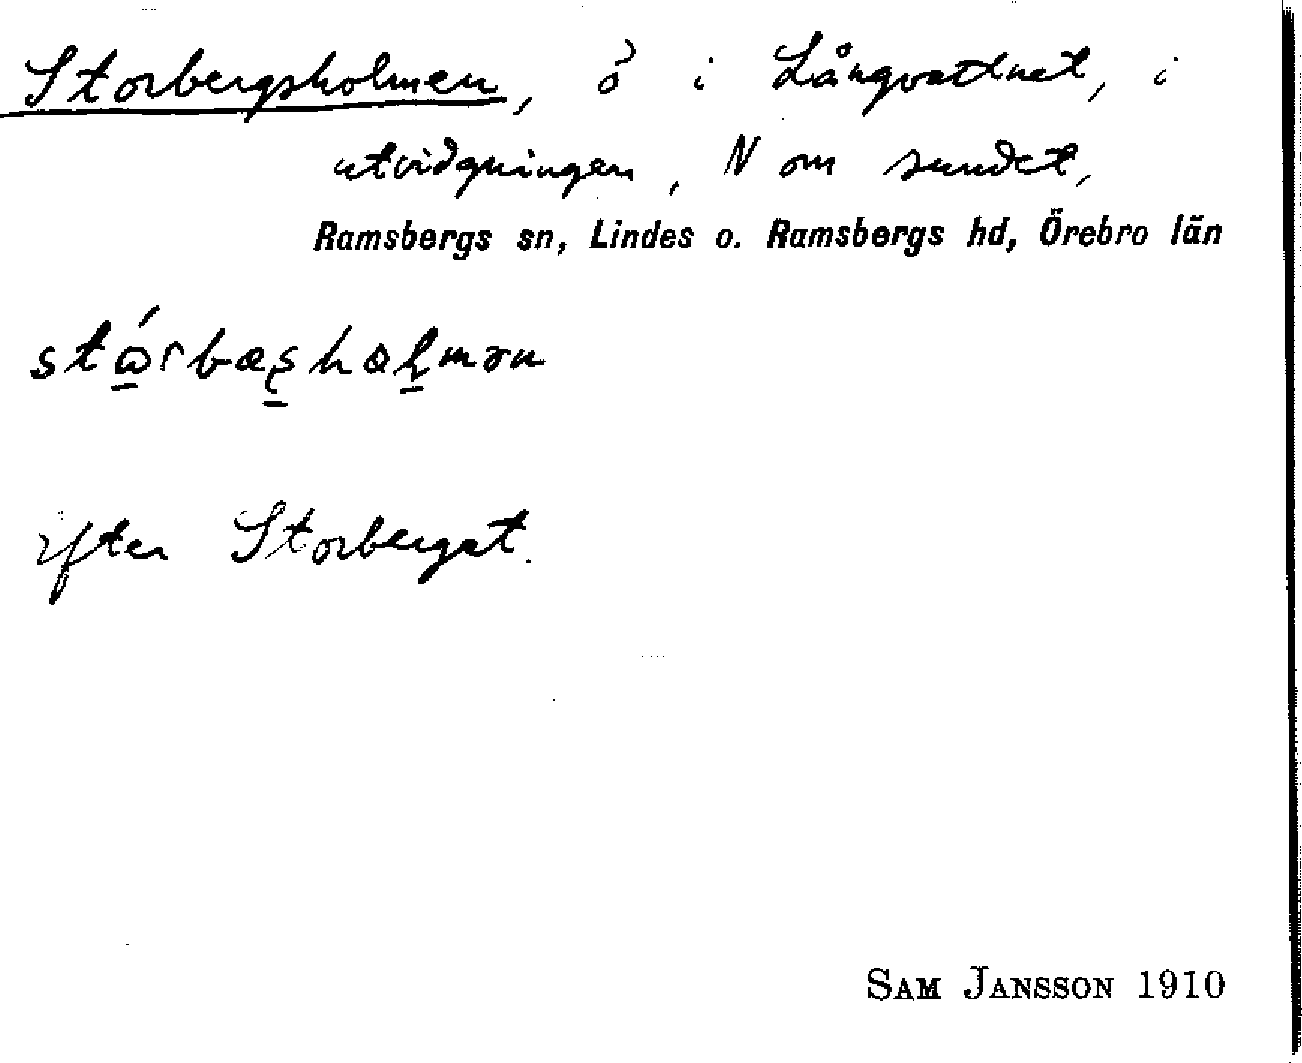 Storbergsholmen, ö i Långvattnet, i
utvidgningen, N om sundet,
Ramsbergs sn, Lindes o. Ramsbergs hd, Örebro län
efter Storberget.
SAM JANSSON 1910